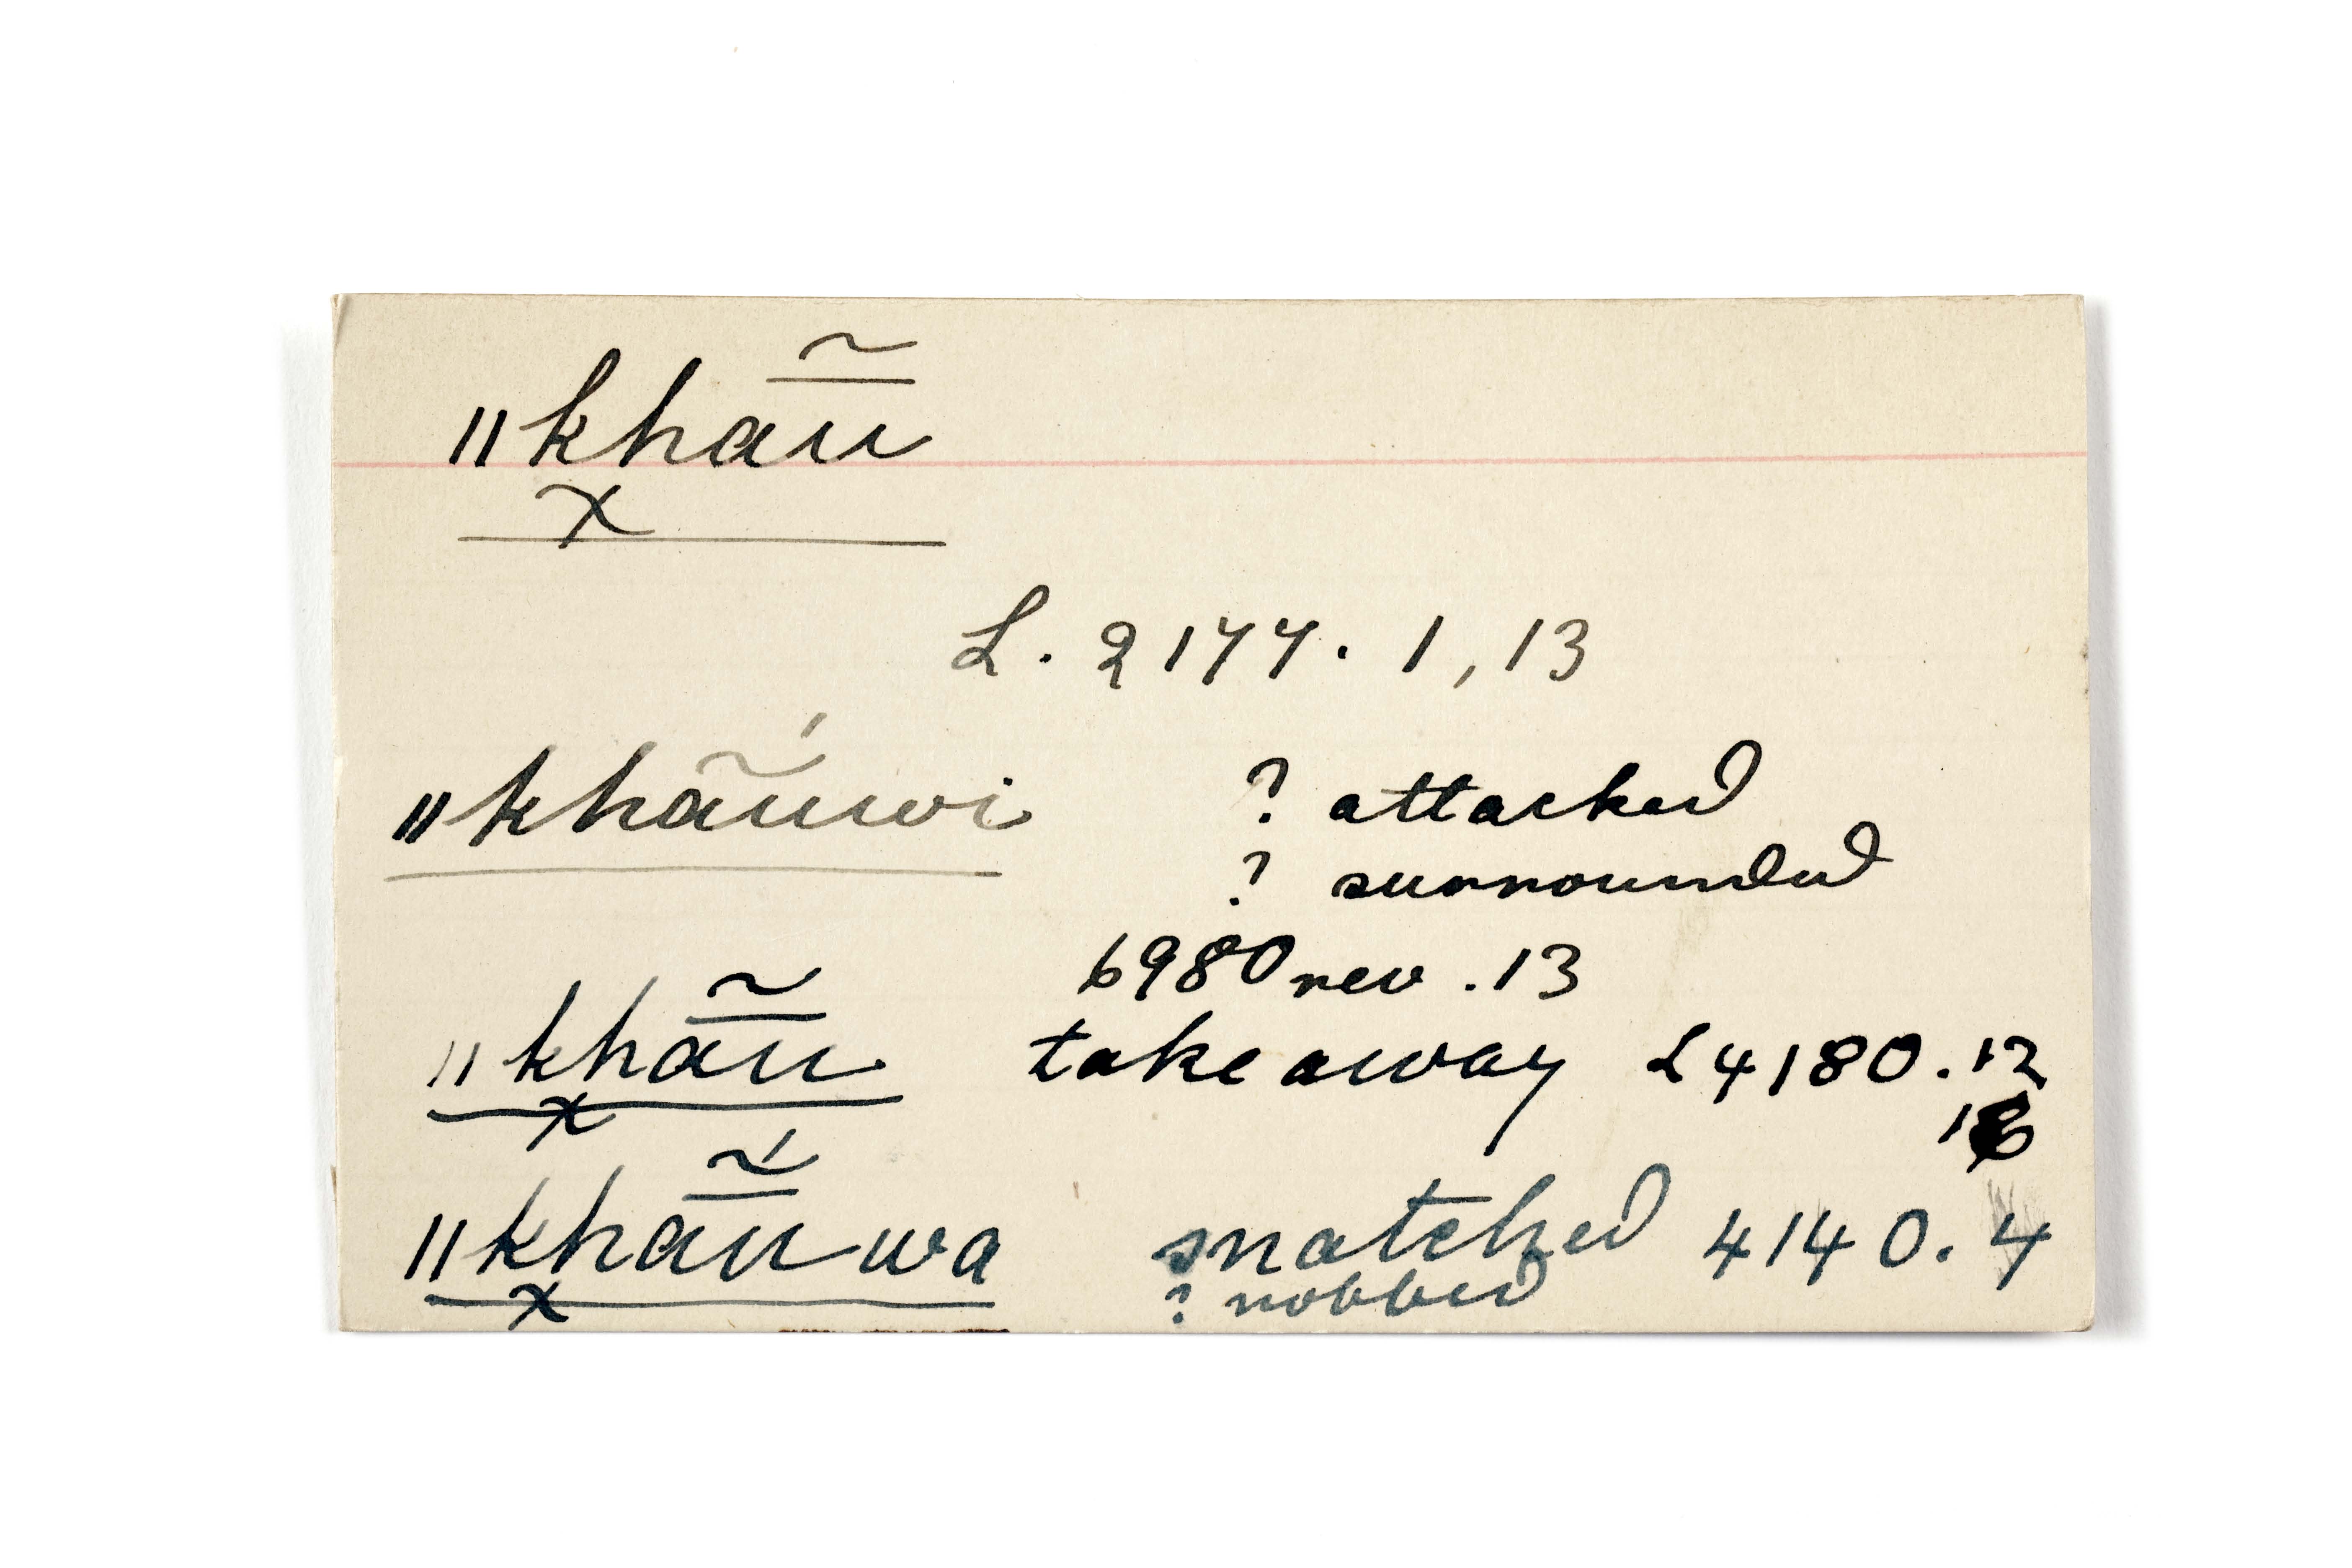 ǁkha͠u̅
x
L. 2177. 1, 13
ǁkhãúwi ? attacked
? surrounded
6980 rev. 13
ǁkha͠u̅ take away L4180. 12
x
ǁkha͠ú̅wa snatched 4140. 4
x ? robbed